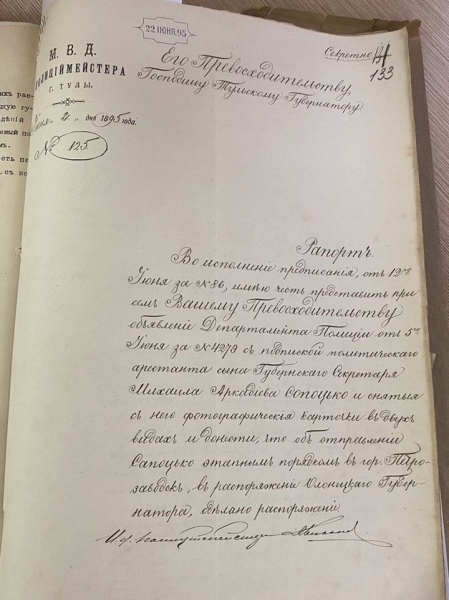 22 ІЮНЯ.95
Секретно
133
М. В. Д.
ПОЛИЦІЙМЕЙСТЕРА
Г. ТУЛЫ.
2
дня 1895 года.
№ 125
Его Превосходительству
Господину Тульскому Губернатору
Рапортъ.
Во исполненіе предписанія, отъ 12го
Іюня за №86, имѣю честь представить при
семъ Вашему Превосходительству
объявленіе Департамента Полиціи отъ 5го
Іюня за №4279 съ подпиской политическаго
арестанта сына Губернскаго Секретаря
Михаила Аркадіева Сопоцько и снятыя
съ него фотографическія карточки въ двухъ
видахъ и донести, что объ отправленіи
Сапоцько этапнымъ порядкомъ въ гор. Петро-
заводскъ, въ распоряженіе Олонецкаго Губер-
натора, сдѣлано распоряженіе.
И.д. Полиціймейстера